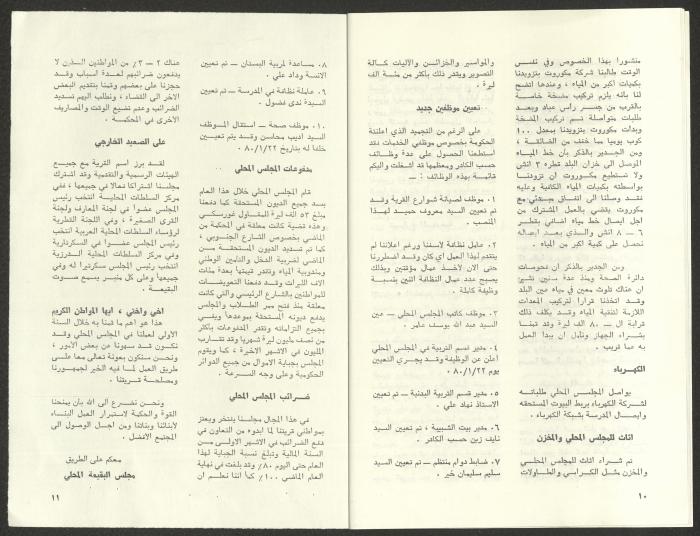 منشورا بهذا الخصوص وفي نفس
الوقت طالبنا شركة مكوروت بتزويدنا
بكميات أكبر من المياه ، وعندها اتضح
لنا بأنه يلزم تركيب مضخة خاصة
بالقرب من جسر رأس عباد وبعد
طلبات متواصلة تم تركيب المضخة
وبدأت مكوروت بتزويدنا بمعدل ١٠٠
كوب يوميا مما خفف من الضائقة ،
ومن الجدير بالذكر بأن خط المياه
الموصل الى خزان البلد قطره ٣ انش
ولا تستطيع مكوروت ان تزودنا
بواسطته بكميات المياه الكافية وعليه
فقد وصلنا الى اتفاق مبدئي مع
مكوروت يقضي بالعمل المشترك من
اجل ايصال خط مياه اضافي بقطر
٦ — ٨ انش والذي بعد ايصاله
نحصل على كمية اكبر من المياه .
ومن الجدير بالذكر ان فحوصات
دائرة الصحة ومنذ عدة سنين تشير
ان هناك تلوث معين في مياه عين البلد
وقد اتخذنا قرارا لتركيب المعدات
اللازمة لتنقية المياه وقد يكلف ذلك
قرابة ال — ٨٠ الف ليرة وقد قمنا
بشراء الجهاز ونأمل ان يبدأ العمل
به مما قريب .
الكهرباء
يواصل المجلس المحلي طلباته
لشركة الكهرباء بربط البيوت المستحقه
وايصال المدرسة بشبكة الكهرباء .
اثاث للمجلس المحلي والمخزن
تم شراء اثاث للمجلس المحلي
والمخزن مثل الكراسي والطاولات
والمواسير والخزائن والآليات كالة
التصوير ويقدر ذلك بأكثر من مئة الف
ليرة .
تعيين موظفين جديد
على الرغم من التجميد الذي اعلنته
الحكومة بخصوص موظفي الخدمات فقد
استطعنا الحصول على عدة وظائف
حسب الكادر ومعظمها قد اشغلت واليكم
قائمة بهذه الوظائف : —
١ . موظف لصيانة شوارع القرية وقد
تم تعيين السيد معروف حميد لهذا
المنصب .
٢ . عامل نظافة لأسفنا ورغم اعلاننا لم
يتقدم لهذا العمل اي كان وقد اضطررنا
حتى الان لأخذ عمال مؤقتين وبذلك
يصبح عدد عمال النظافة اثنين بنسبة
وظيفة كاملة .
٣ . موظف كاتب المجلس المحلي — عين
السيد عبد الله يوسف عامر .
٤ . مدير قسم التربية في المجلس المحلي
اعلن عن الوظيفة وقد يجري التعيين
يوم ٨٠/١/٢٢ .
٥ . مدير قسم التربية البدنية — تم تعيين
الاستاذ نهاد علي .
٦ . مدير بيت الشبيبة ، تم تعيين السيد
نايف زين حسب الكادر .
٧ . ضابط دوام منتظم — تم تعيين السيد
سليم سليمان خير .
١٠
٨ . مساعدة لمربية البستان — تم تعيين
الانسة وداد علي .
٩ . عاملة نظافة في المدرسة — تم تعيين
السيدة ندى فضول .
١٠ . موظف صحة — استقال الموظف
السيد اديب محاسن وقد يتم تعيين
خلفا له بتاريخ ٨٠/١/٢٢ .
مدفوعات المجلس المحلي
قام المجلس المحلي خلال هذا العام
بسد جميع الديون المستحقة كما دفعنا
مبلغ ٥٣ الف ليرة للمقاول غورسكي
وهذه قضية كانت معلقة في المحكمة من
الماضي بخصوص الشارع الجنوبي ،
كما تم تسديد الديون المستحقة من
الماضي لضريبة الدخل والتأمين الوطني
ومندوبية المياه وتقدر قيمتها بعدة مئات
الاف الليرات وقد دفعنا التعويضات
للمواطنين بالشارع الرئيسي والتي كانت
معلقة منذ فتح ممر الطلاب والمجلس
يدفع ديونه المستحقة بموعدها ويفي
بجميع التزاماته وتقدر المدفوعات بأكثر
من نصف مليون ليرة شهريا وقد تقارب
المليون في الاشهر الاخيرة ، كما ويقوم
المجلس بجباية الاموال من جميع الدوائر
الحكومية وعلى وجه السرعة .
ضرائب المجلس المحلي
في هذا المجال مجلسنا يفتخر ويعتز
بمواطني قريتنا لما ابدوه من التعاون في
دفع الضرائب في الاشهر الاولى من
السنة المالية وتبلغ نسبة الجباية لهذا
العام حتى اليوم ٨٠٪ وقد بلغت في نهاية
العام الماضي ١٠٠٪ كما أننا نعلم ان
هناك ٢ — ٣٪ من المواطنين الذين لا
يدفعون ضرائبهم لعدة اسباب وقد
حجزنا على بعضهم وقمنا بتقديم البعض
الاخر الى القضاء ، ونطلب اليهم تسديد
الضرائب وعدم تضيع الوقت والمصاريف
الاخرى في المحكمة .
على الصعيد الخارجي
لقد برز اسم القرية مع جميع
الهيئات الرسمية والتقدمية وقد اشترك
مجلسنا اشتراكا فعالا في جميعها ، ففي
مركز السلطات المحلية انتخب رئيس
المجلس عضوا في لجنة المعارف ولجنة
القرى الصغيرة ، وفي اللجنة القطرية
لرؤساء السلطات المحلية العربية انتخب
رئيس المجلس عضوا في السكرتارية
وفي مركز السلطات المحلية الدرزية
انتخب رئيس المجلس سكرتيرا له وفي
جميعها وعلى كل منبر يسمع صوت
البقيعة .
اخي واختي ، ايها المواطن الكريم
هذا هو اهم ما قمنا به خلال السنة
الاولى لعملنا في المجلس المحلي وقد
نكون قد سهونا عن بعض الامور ،
ونحن سنكون بعونه تعالى معا على
طريق العمل لما فيه الخير لجمهورنا
ومصلحة قريتنا .
ونحن نضرع الى الله بأن يمنحنا
القوة والحكمة لاستمرار العمل البناء
لأبنائنا وبناتنا ومن اجل الوصول الى
المجتمع الافضل .
معكم على الطريق
مجلس البقيعة المحلي
١١